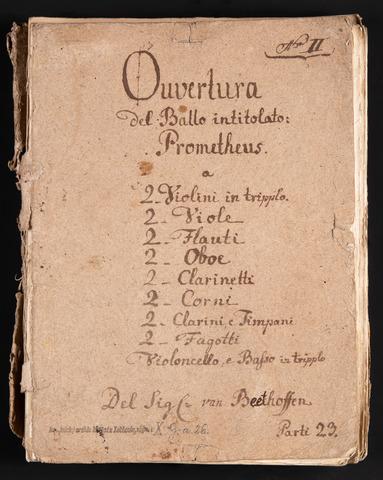 Nro II
Ouvertura
del Ballo intitolato:
Prometheus.
a
2_ Violini in tripplo.
2_ Viole
2_ Flauti
2_ Oboe
2_ Clarinetti
2_ Corni
2_ Clarini, e Timpani
2_ Fagotti
Violoncello, e Basso in tripplo
Del Sig: van Beethoffen
X
Parti 23.